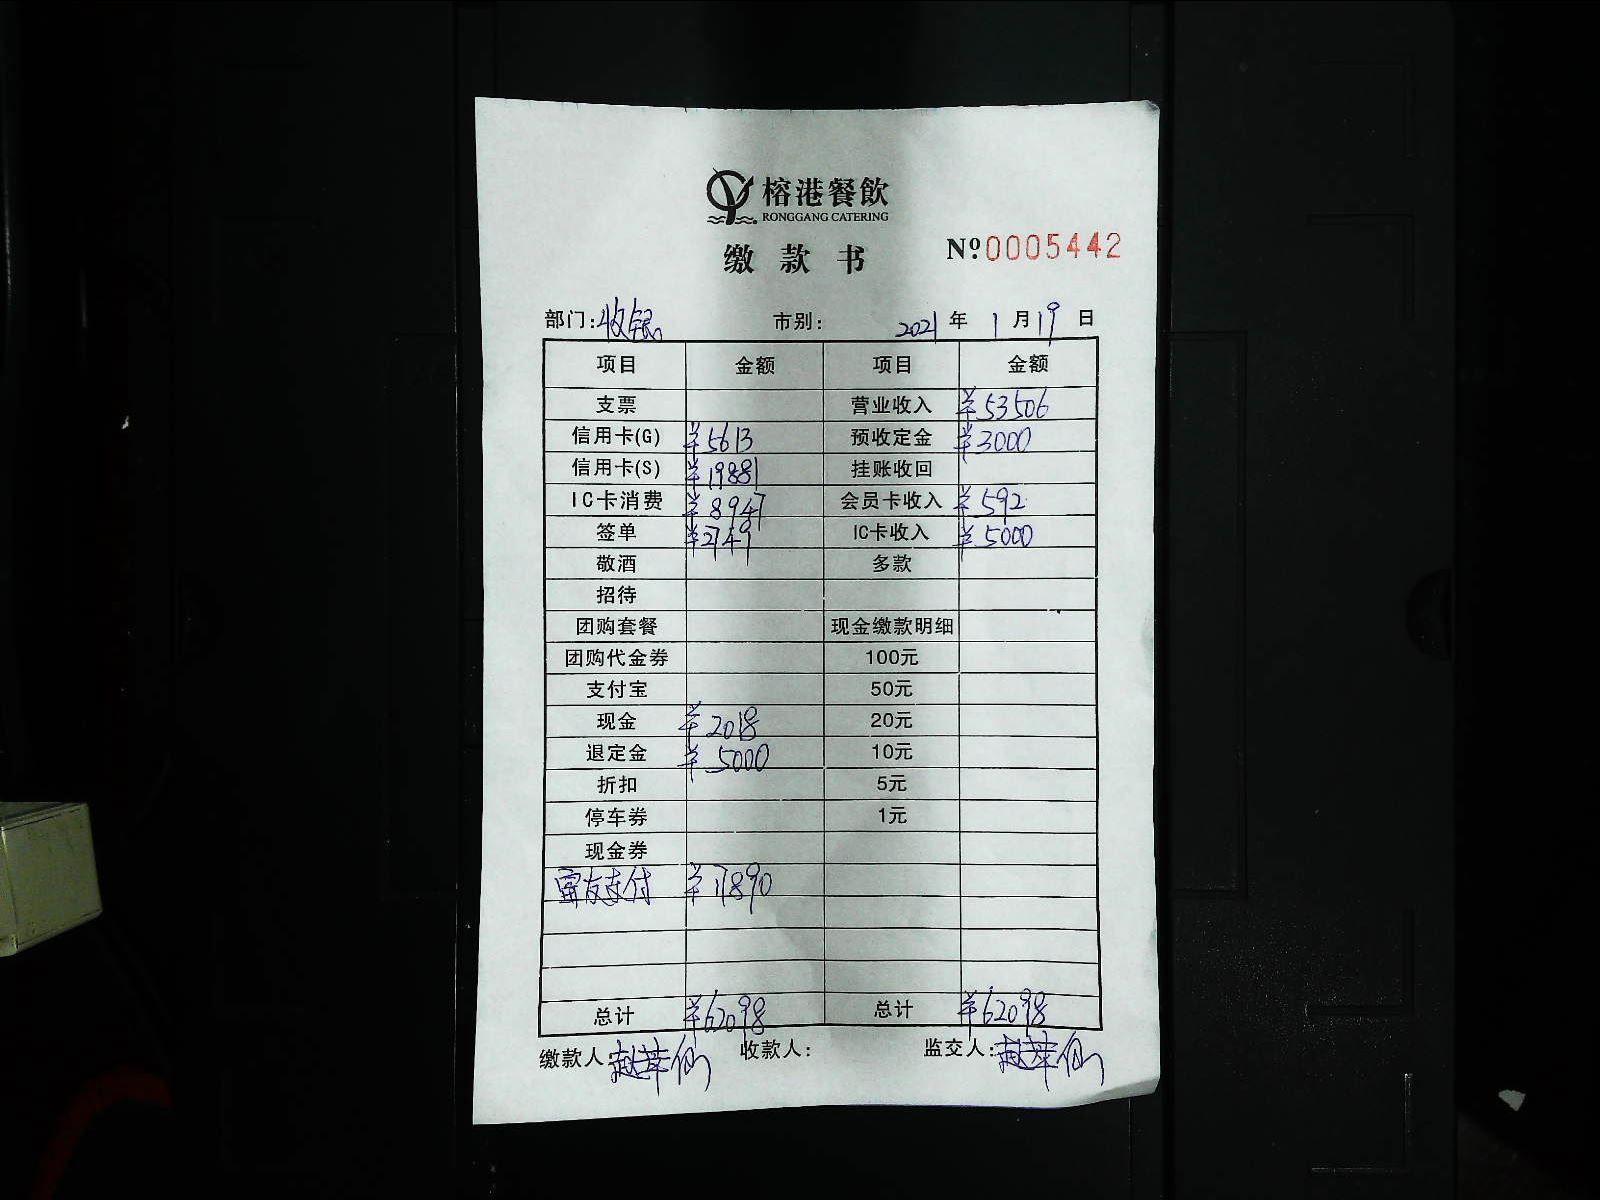 榕港餐飲
RONGGANG CATERING
缴款书 №0005442
部门:收银 市别: 2021年1月19日
项目 金额 项目 金额
支票 营业收入 ¥53506
信用卡(G) ¥5613 预收定金 ¥3000
信用卡(S) ¥19881 挂账收回
IC卡消费 ¥8947 会员卡收入 ¥592
签单 ¥2749 IC卡收入 ¥5000
敬酒 多款
招待
团购套餐 现金缴款明细
团购代金券 100元
支付宝 50元
现金 ¥2018 20元
退定金 ¥5000 10元
折扣 5元
停车券 1元
现金券
富友支付 ¥17890
总计 ¥62098 总计 ¥62098
缴款人: 收款人: 监交人: